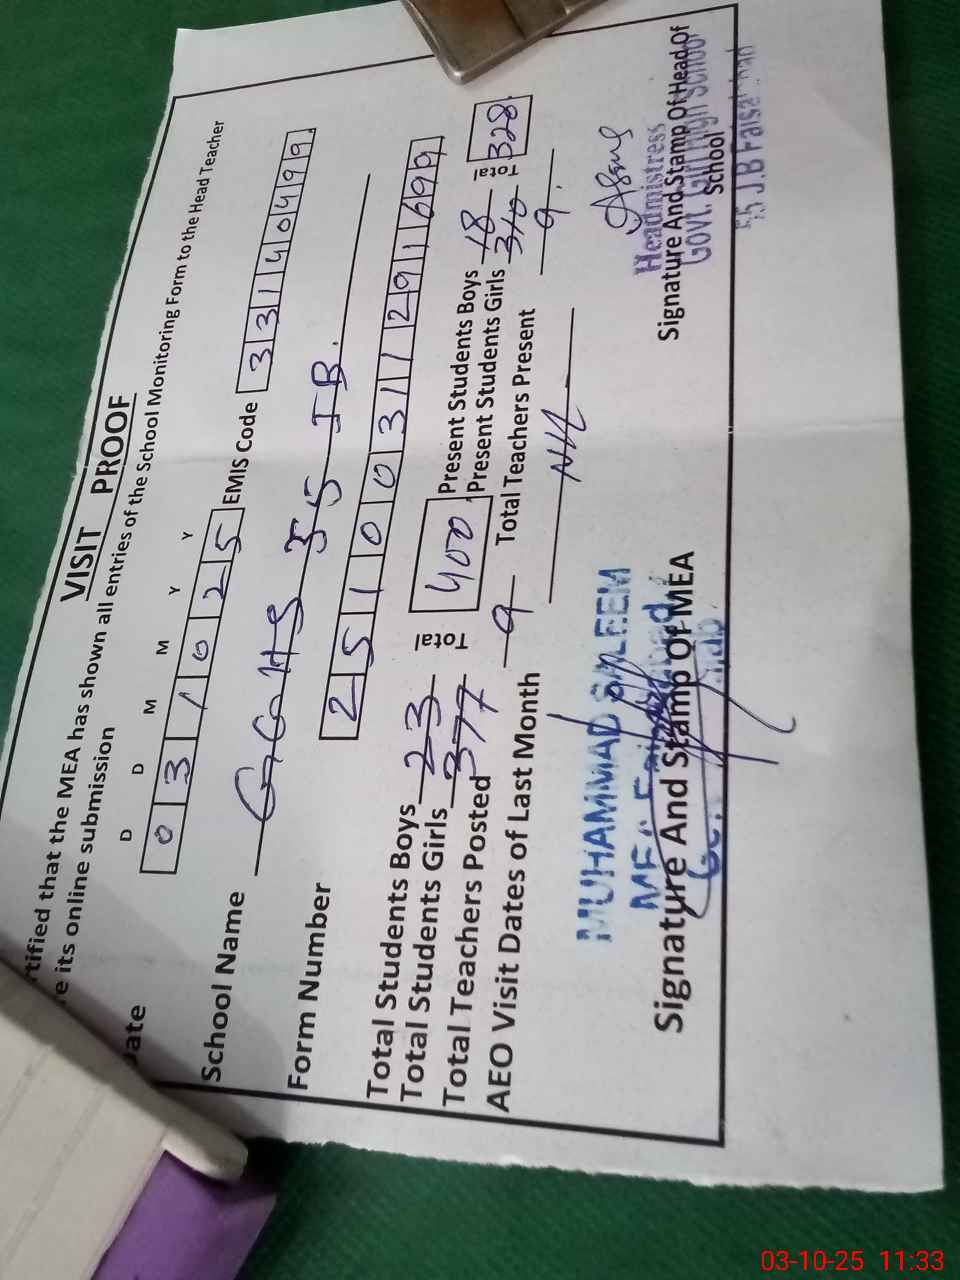 VISIT PROOF
rtified that the MEA has shown all entries of the School Monitoring Form to the Head Teacher
re its online submission
D D M M Y Y
ate 0 3 1 0 2 5 EMIS Code 3 3 1 4 0 4 9 9
School Name GGHS 55 JB.
Form Number 2 5 1 0 0 3 1 1 2 9 1 6 9 9
Total Students Boys 23 Total 400 Present Students Boys 18 Total 328
Total Students Girls 377 Present Students Girls 310
Total Teachers Posted 9 Total Teachers Present 9
AEO Visit Dates of Last Month Nil
MUHAMMAD SALEEM
MEA
Signature And Stamp Of MEA
Headmistress
Signature And Stamp Of Head Of
Govt. Girl High School
School
55 J.B Faisalabad
03-10-25 11:33